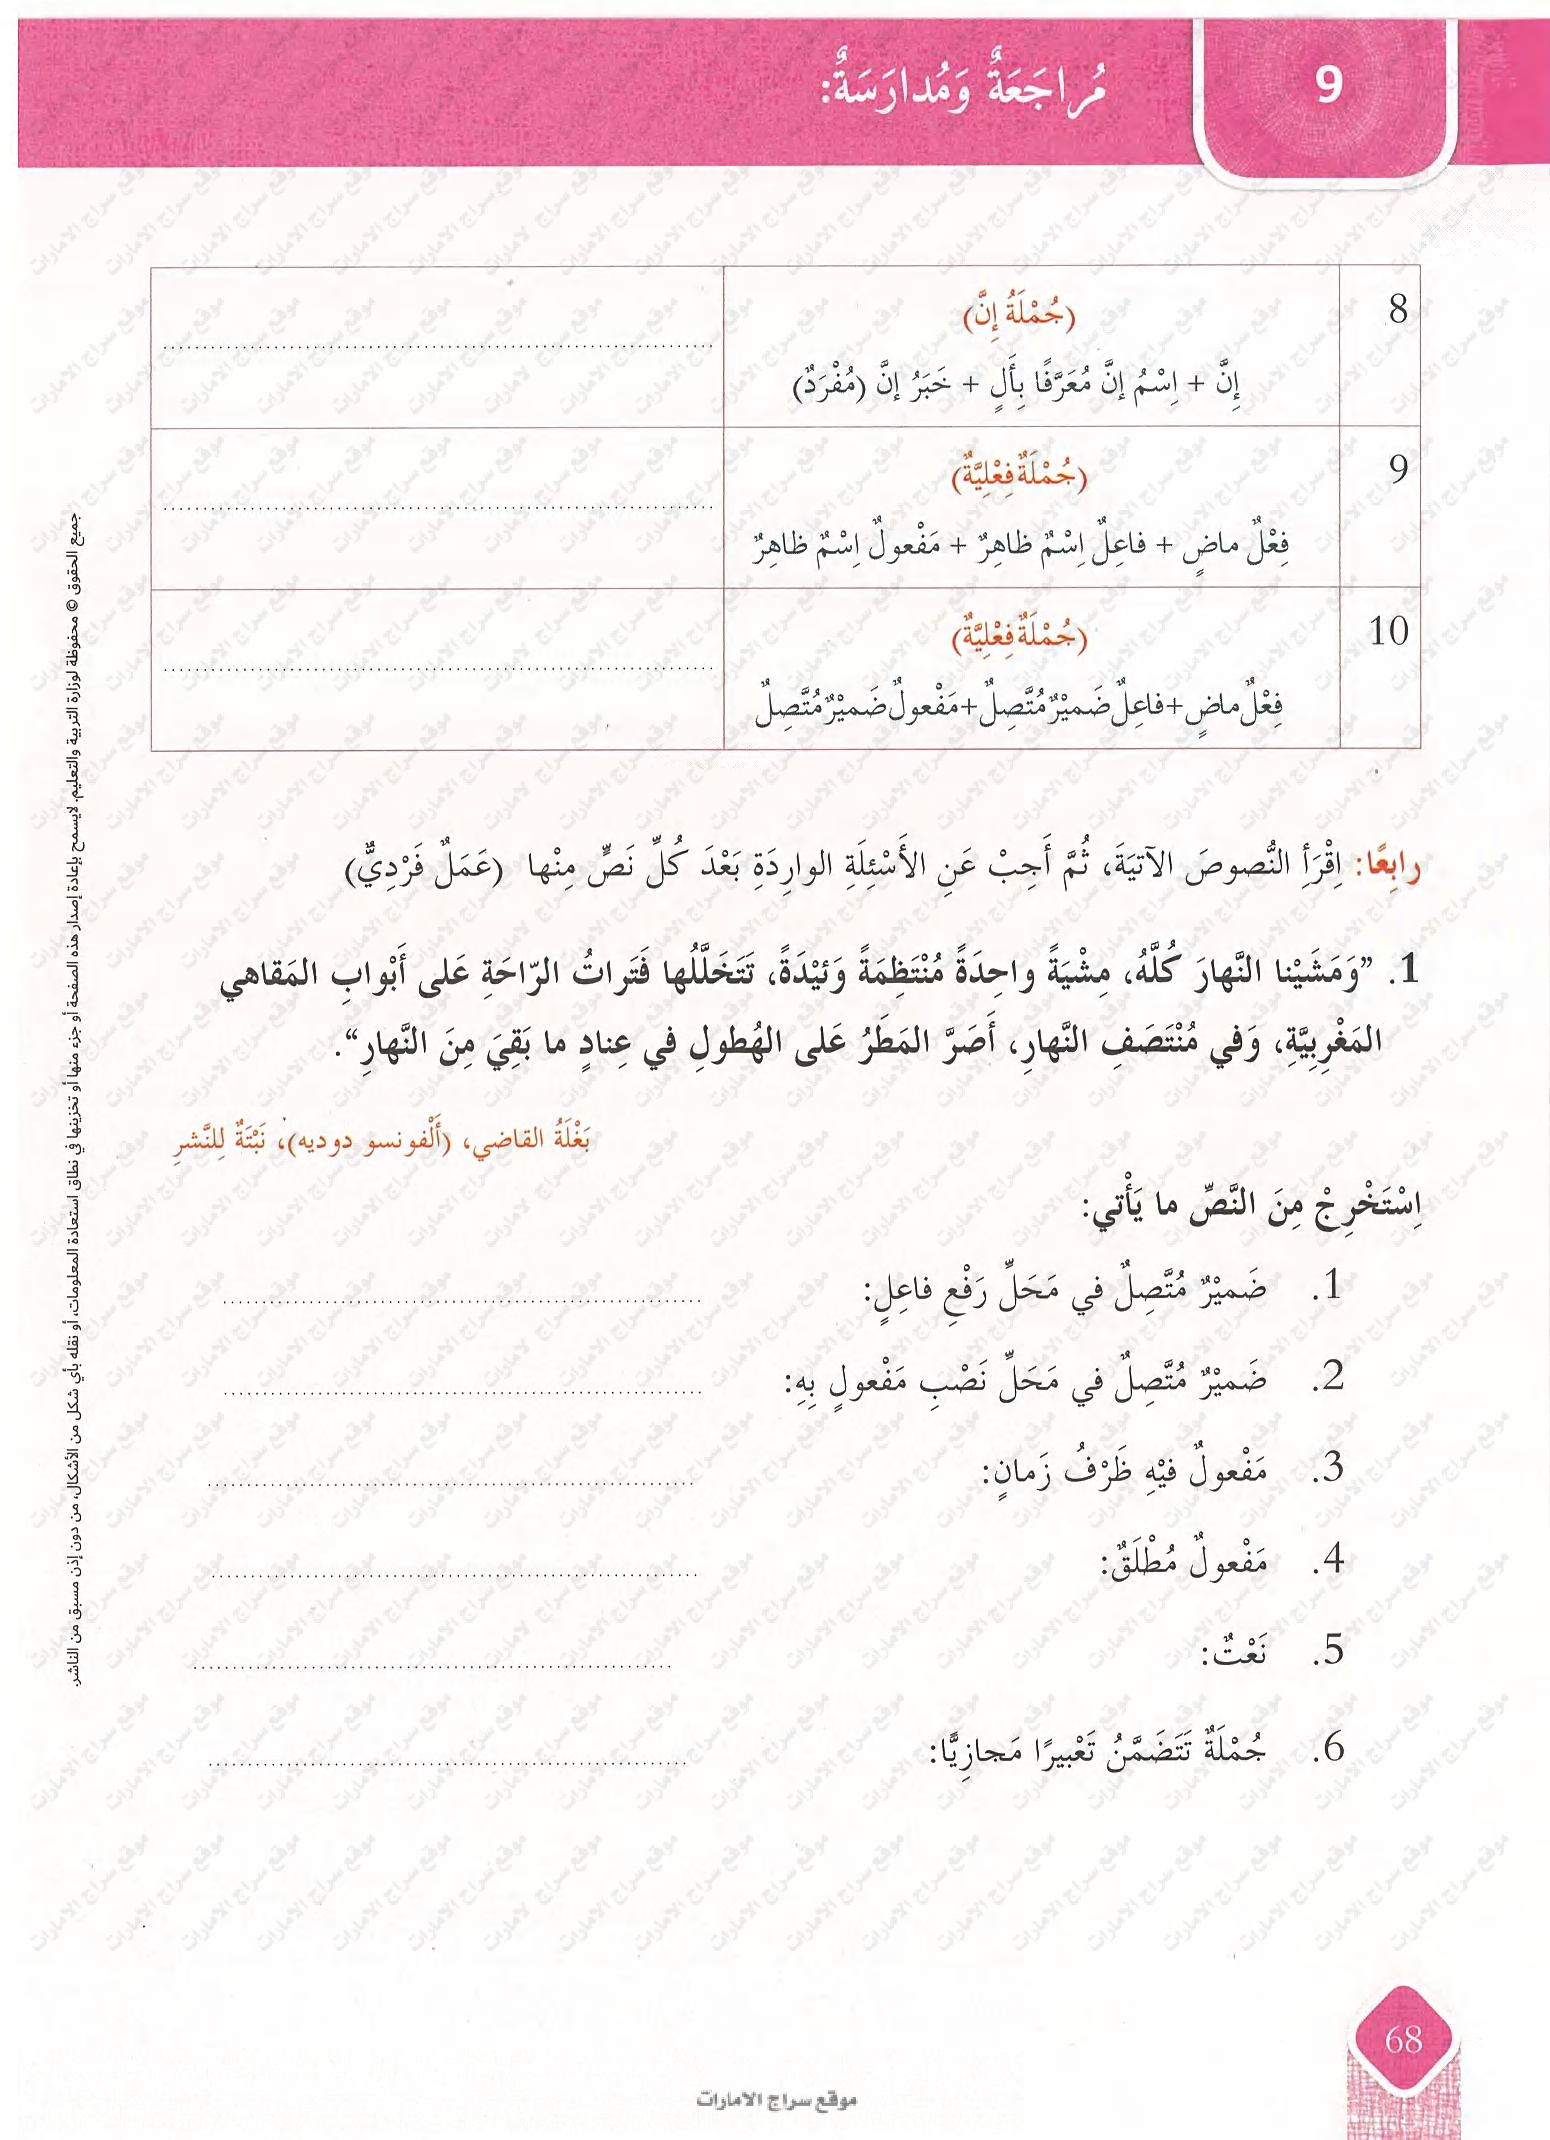 9
مُراجَعَةٌ وَمُدارَسَةٌ:
8
(جُمْلَةُ إِنَّ)
إِنَّ + اِسْمُ إنَّ مُعَرَّفًا بِأَلٍ + خَبَرُ إنَّ (مُفْرَدٌ)
9
(جُمْلَةٌ فِعْلِيَّةٌ)
فِعْلٌ ماضٍ + فاعِلٌ اِسْمٌ ظاهِرٌ + مَفْعولٌ اِسْمٌ ظاهِرٌ
10
(جُمْلَةٌ فِعْلِيَّةٌ)
فِعْلٌ ماضٍ+فاعِلٌ ضَميْرٌ مُتَّصِلٌ+مَفْعولٌ ضَميْرٌ مُتَّصِلٌ
رابِعًا: اِقْرَأِ النُّصوصَ الآتيَةَ، ثُمَّ أَجِبْ عَنِ الأَسْئِلَةِ الوارِدَةِ بَعْدَ كُلِّ نَصٍّ مِنْها (عَمَلٌ فَرْدِيٌّ)
1. "وَمَشَيْنا النَّهارَ كُلَّهُ، مِشْيَةً واحِدَةً مُنْتَظِمَةً وَئيْدَةً، تَتَخَلَّلُها فَتَراتُ الرّاحَةِ عَلى أَبْوابِ المَقاهي
المَغْرِبِيَّةِ، وَفي مُنْتَصَفِ النَّهارِ، أَصَرَّ المَطَرُ عَلى الهُطولِ في عِنادٍ ما بَقِيَ مِنَ النَّهارِ".
بَغْلَةُ القاضي، (أَلْفونسو دوديه)، نَبْتَةٌ لِلنَّشرِ
اِسْتَخْرِجْ مِنَ النَّصِّ ما يَأْتي:
1. ضَميْرٌ مُتَّصِلٌ في مَحَلِّ رَفْعِ فاعِلٍ:
2. ضَميْرٌ مُتَّصِلٌ في مَحَلِّ نَصْبِ مَفْعولٍ بِهِ:
3. مَفْعولٌ فيْهِ ظَرْفُ زَمانٍ:
4. مَفْعولٌ مُطْلَقٌ:
5. نَعْتٌ:
6. جُمْلَةٌ تَتَضَمَّنُ تَعْبيرًا مَجازِيًّا:
جميع الحقوق © محفوظة لوزارة التربية والتعليم. لايسمح بإعادة إصدار هذه الصفحة أو جزء منها أو تخزينها في نطاق استعادة المعلومات، أو نقله بأي شكل من الأشكال، من دون إذن مسبق من الناشر.
68
موقع سراج الامارات